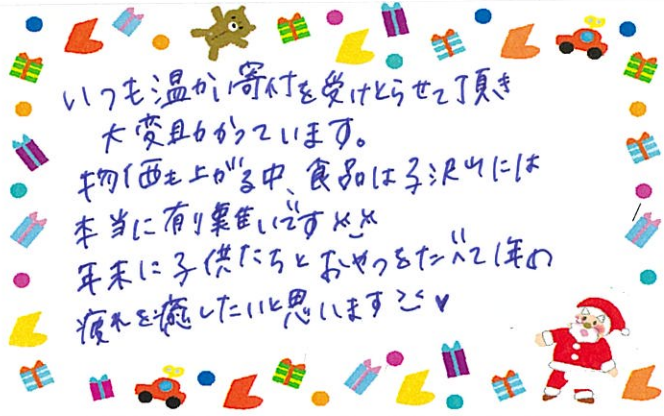 いつも温かい寄付を受けとらせて頂き
大変助かっています。
物価も上がる中、食品は子沢山には
本当に有り難いです
年末に子供たちとおやつをたべて1年の
疲れを癒したいと思います♥